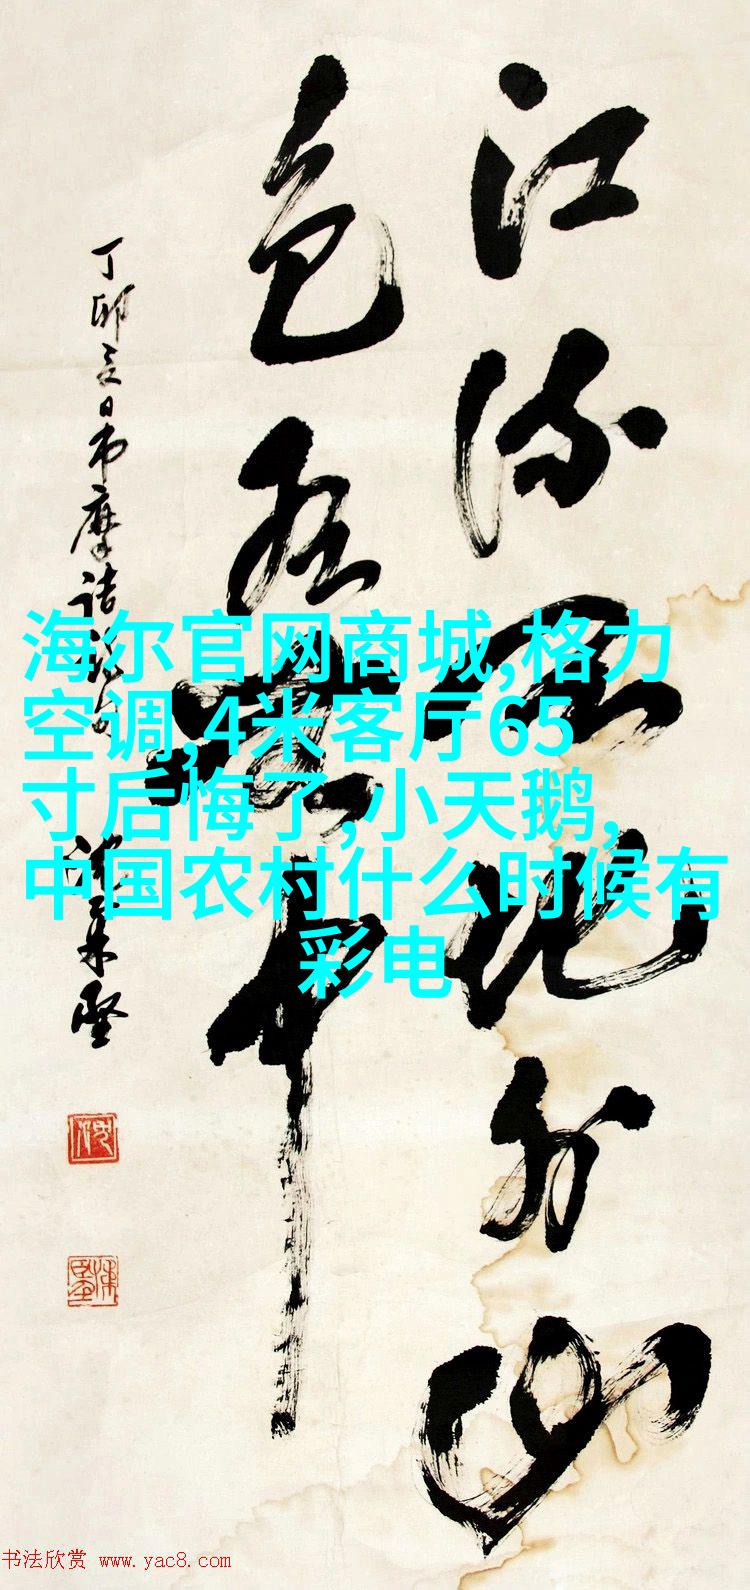 江流天地外山
色有无中
丁卯夏日书摩诘
海尔官网商城,格力
空调,4米客厅65
寸后悔了,小天鹅,
中国农村什么时候有
彩电
书法欣赏 www.yac8.com